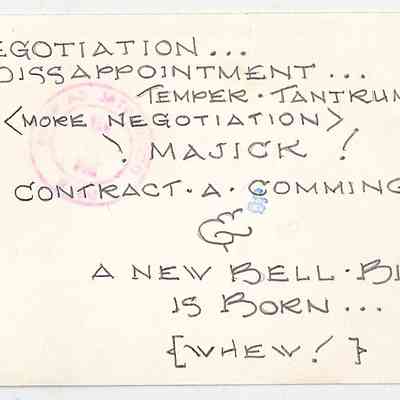 EGOTIATION...
DISSAPPOINTMENT...
TEMPER·TANTRUM
<MORE NEGOTIATION>
? MAJICK !
CONTRACT·A·COMMING
&
A NEW BELL·B
IS BORN...
{WHEW!}